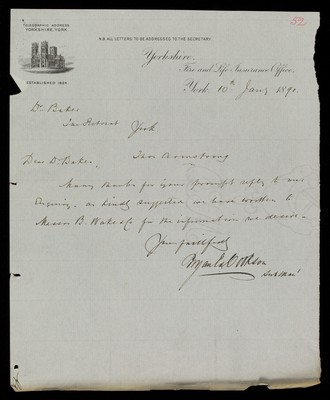 52
TELEGRAPHIC ADDRESS
YORKSHIRE, YORK
N.B. ALL LETTERS TO BE ADDRESSED TO THE SECRETARY.
Yorkshire
Fire and Life Insurance Office.
ESTABLISHED 1824.
York 10th Jany 1890.
Dr Baker
The Retreat
York
Dear Dr Baker,
Armstrong
Many thanks for your prompt reply to our
enquiry. As kindly suggested we have written to
Messrs B. Wake & Co for the information we desire.
Yours faithfully